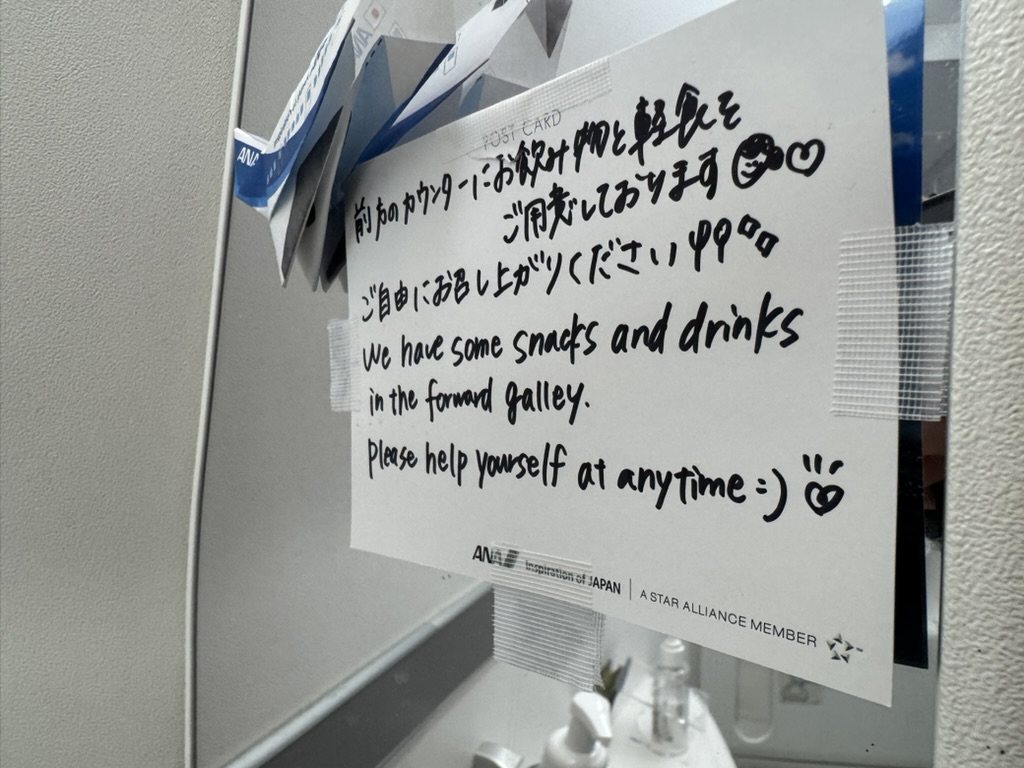 ANA
ANA
POST CARD
前方のカウンターにお飲み物と軽食を
ご用意しております
ご自由にお召し上がりください
We have some snacks and drinks
in the forward galley.
Please help yourself at anytime =)
ANA Inspiration of JAPAN | A STAR ALLIANCE MEMBER